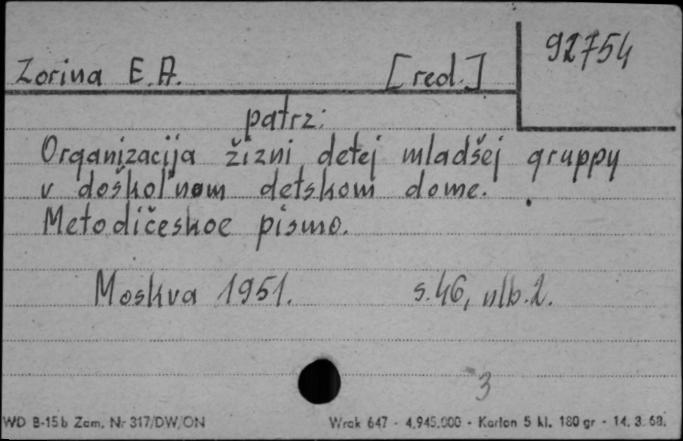 92754
Zorina E.A. [red.]
patrz:
Organizacija žizni detej mladšej gruppy
v doškol'nom detskom dome.
Metodičeskoe pismo.
Moskva 1951. s. 46, nlb. 2.
3
WD B-15b Zam. Nr 317/DW/ON Wrak 647 - 4.945.000 - Karton 5 kl. 180 gr - 14. 3. 68.